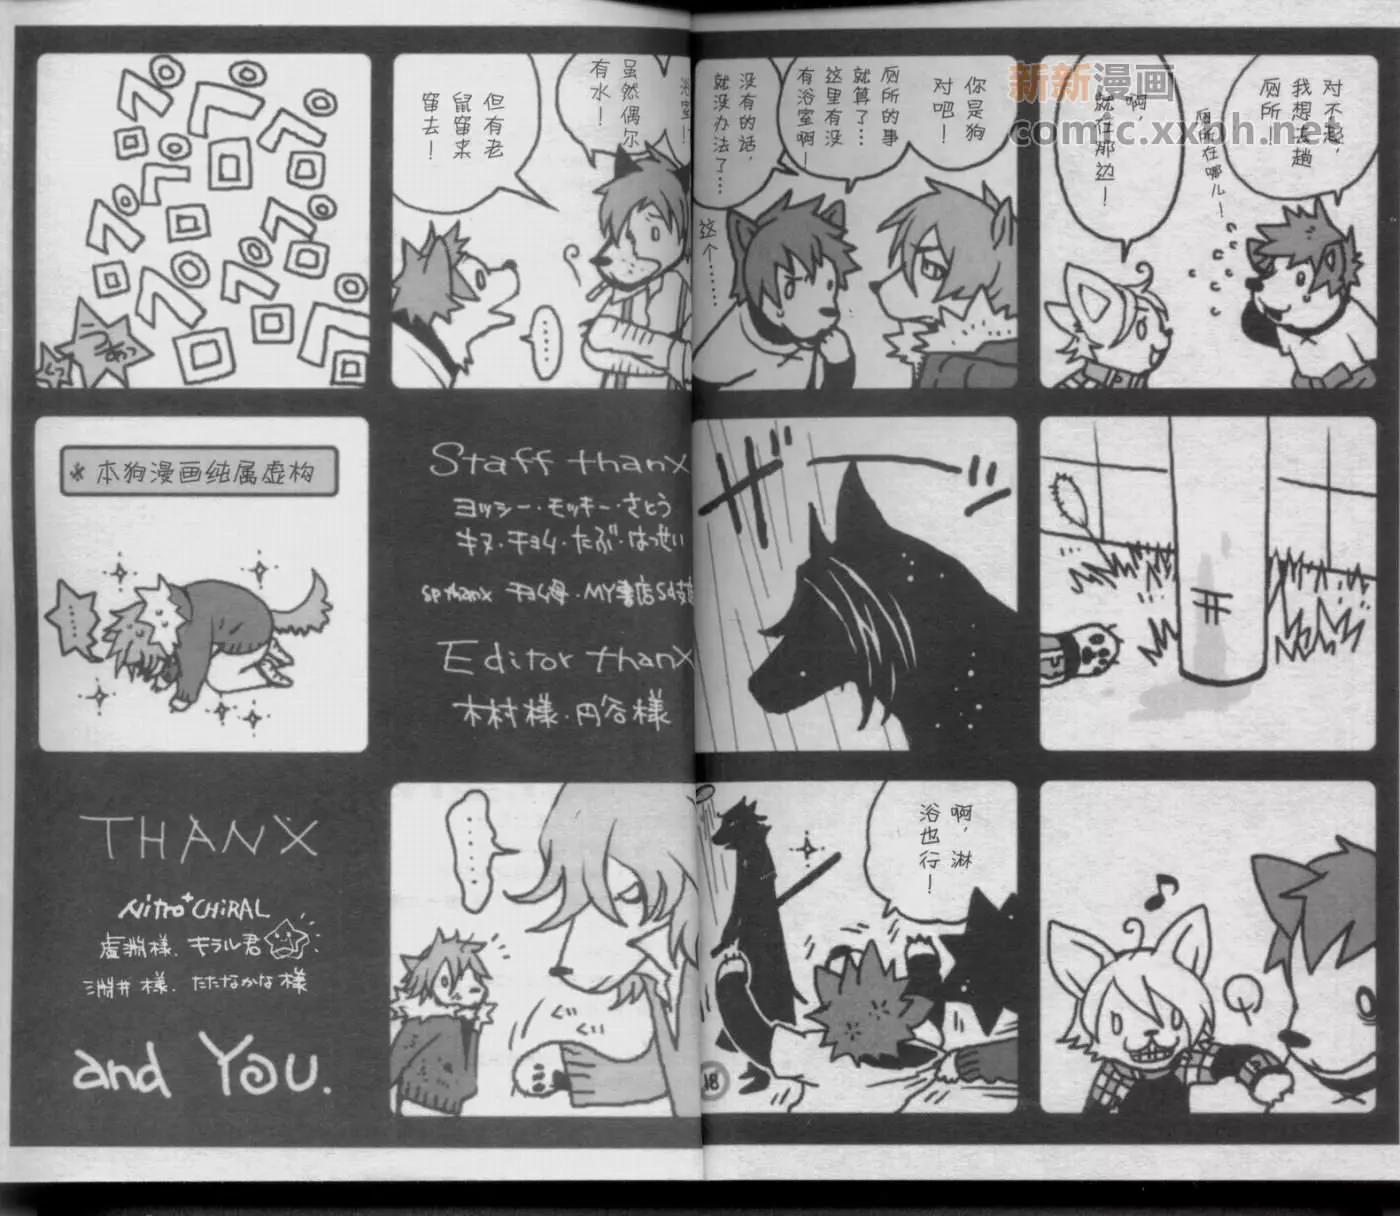 对不起，
我想去趟
厕所！
厕所在哪儿！
啊，
就在那边！
新新漫画
comic.xxoh.net
你是狗
对吧！
厕所的事
就算了…
这里有没
有浴室啊！
没有的话，
就没办法了…
这个………
浴室！？
虽然偶尔
有水！
但有老
鼠窜来
窜去！
……
啊，淋
浴也行！
ザーッ
18
ぐぃ
ぐぃ
……
※本狗漫画纯属虚构
……
Staff thanx
ヨッシー・モッキー・さとう
キヌ・チョム・たぶ・はっせい
sp thanx チョム母・MY書店
Editor thanx
木村様・円谷様
THANX
Nitro+CHiRAL
虚淵様、キラル君
淵井様・たたなかな様
and You.